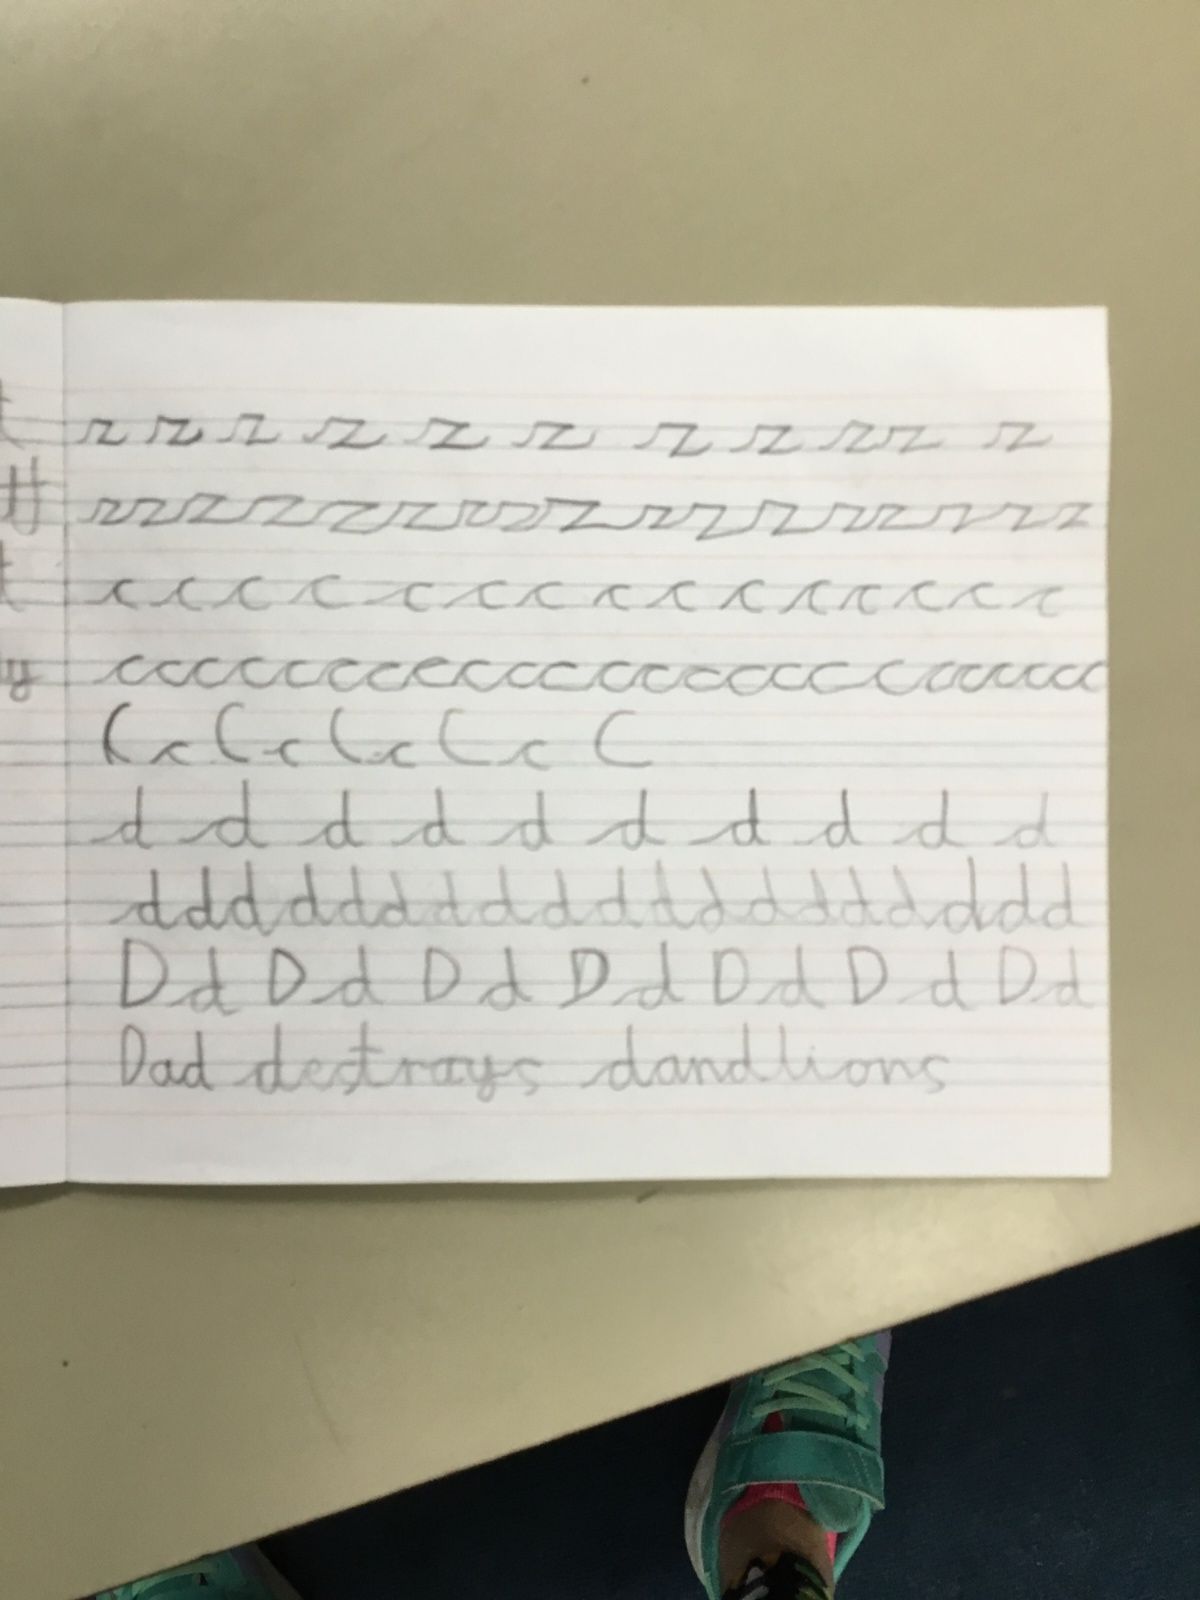 z z z z z z z z z z z
z z z z z z z z z z z z z z z z
c c c c c c c c c c c c c c c
ccccccccccccccccccccccc
C c C c C c C c C
d d d d d d d d d d
ddddddddddddddddddd
D d D d D d D d D d D d D d
Dad destroys dandlions